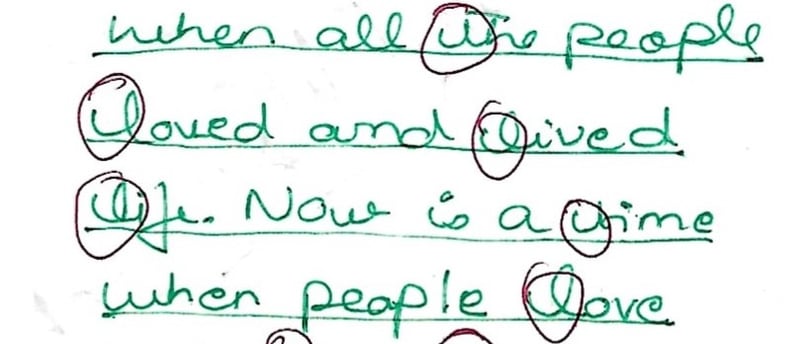 when all the people
loved and lived
life. Now is a time
when people love